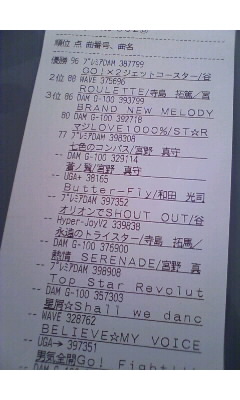 順位 点 曲番号、曲名
優勝 96 プレミアDAM 387799
GO!×2ジェットコースター/谷
2位 88 WAVE 375696
ROULETTE/寺島 拓篤/宮
3位 86 DAM G-100 393799
BRAND NEW MELODY
80 DAM G-100 392718
マジLOVE1000%/ST☆R
77 プレミアDAM 398908
七色のコンパス/宮野 真守
-- DAM G-100 329114
蒼ノ翼/宮野 真
-- UGA+ 38165
Butter-Fly/和田 光司
-- プレミアDAM 397352
オリオンでSHOUT OUT/谷
-- Hyper-JoyV2 339838
永遠のトライスター/寺島 拓篤/
-- DAM G-100 376900
熱情 SERENADE/宮野 真
-- プレミアDAM 398908
Top Star Revolut
-- DAM G-100 357303
星屑☆Shall we danc
-- WAVE 328762
BELIEVE☆MY VOICE
-- UGA+ 397351
男気全開Go! Fight!!
-- DAM G-100